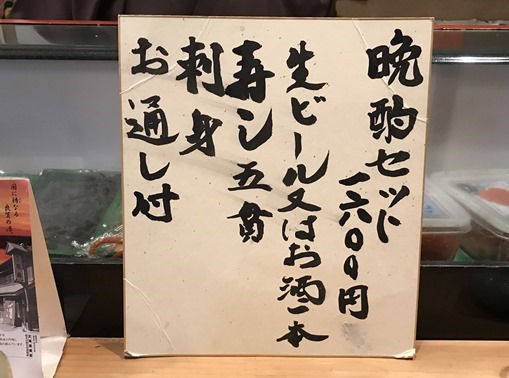 晩酌セット
一六〇〇円
生ビール又はお酒一本
寿し五貫
刺身
お通し付